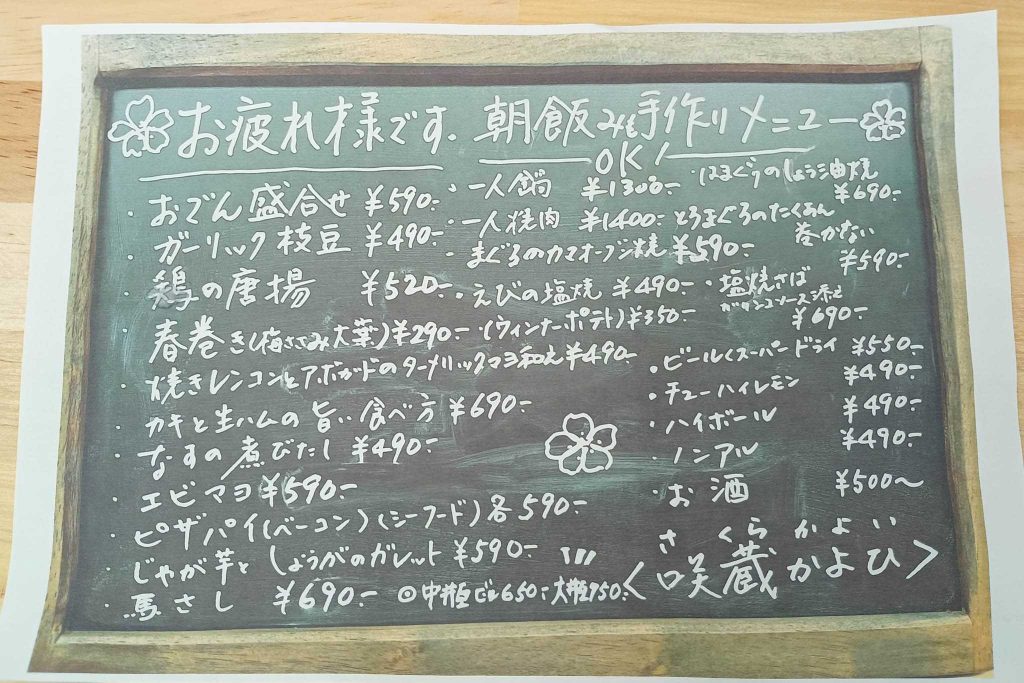 お疲れ様です. 朝飯み手作りメニュー
OK!
・おでん盛合せ ¥590-
・ガーリック枝豆 ¥490-
・鶏の唐揚 ¥520-
・春巻き(梅ささみ大葉)¥290-
・焼きレンコンとアボカドのターメリックマヨ和え¥490-
・カキと生ハムの旨い食べ方 ¥690-
・なすの煮びたし ¥490-
・エビマヨ ¥590-
・ピザパイ(ベーコン)(シーフード)各590-
・じゃが芋としょうがのガレット ¥590-
・馬さし ¥690-
・一人鍋 ¥1300-
・一人焼肉 ¥1400-
・まぐろのカマオーブン焼 ¥590-
・えびの塩焼 ¥490-
・(ウィンナーポテト)¥350-
・はまぐりのしょう油焼
¥690-
とろまぐろのたくあん
巻かない
¥590-
・塩焼さば
ソース添え
¥690-
・ビール(スーパードライ ¥550-
・チューハイレモン ¥490-
・ハイボール ¥490-
・ノンアル ¥490-
・お酒 ¥500〜
◎中瓶ビール650- 大瓶750-
さくらかよい
<咲蔵かよひ>